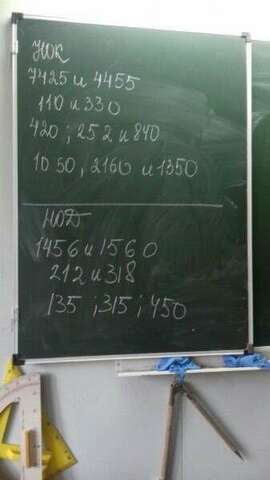 НОК
7425 и 4455
110 и 330
420 ; 252 и 840
1050, 2160 и 1350
НОД
1456 и 1560
212 и 318
135 ; 315 ; 450